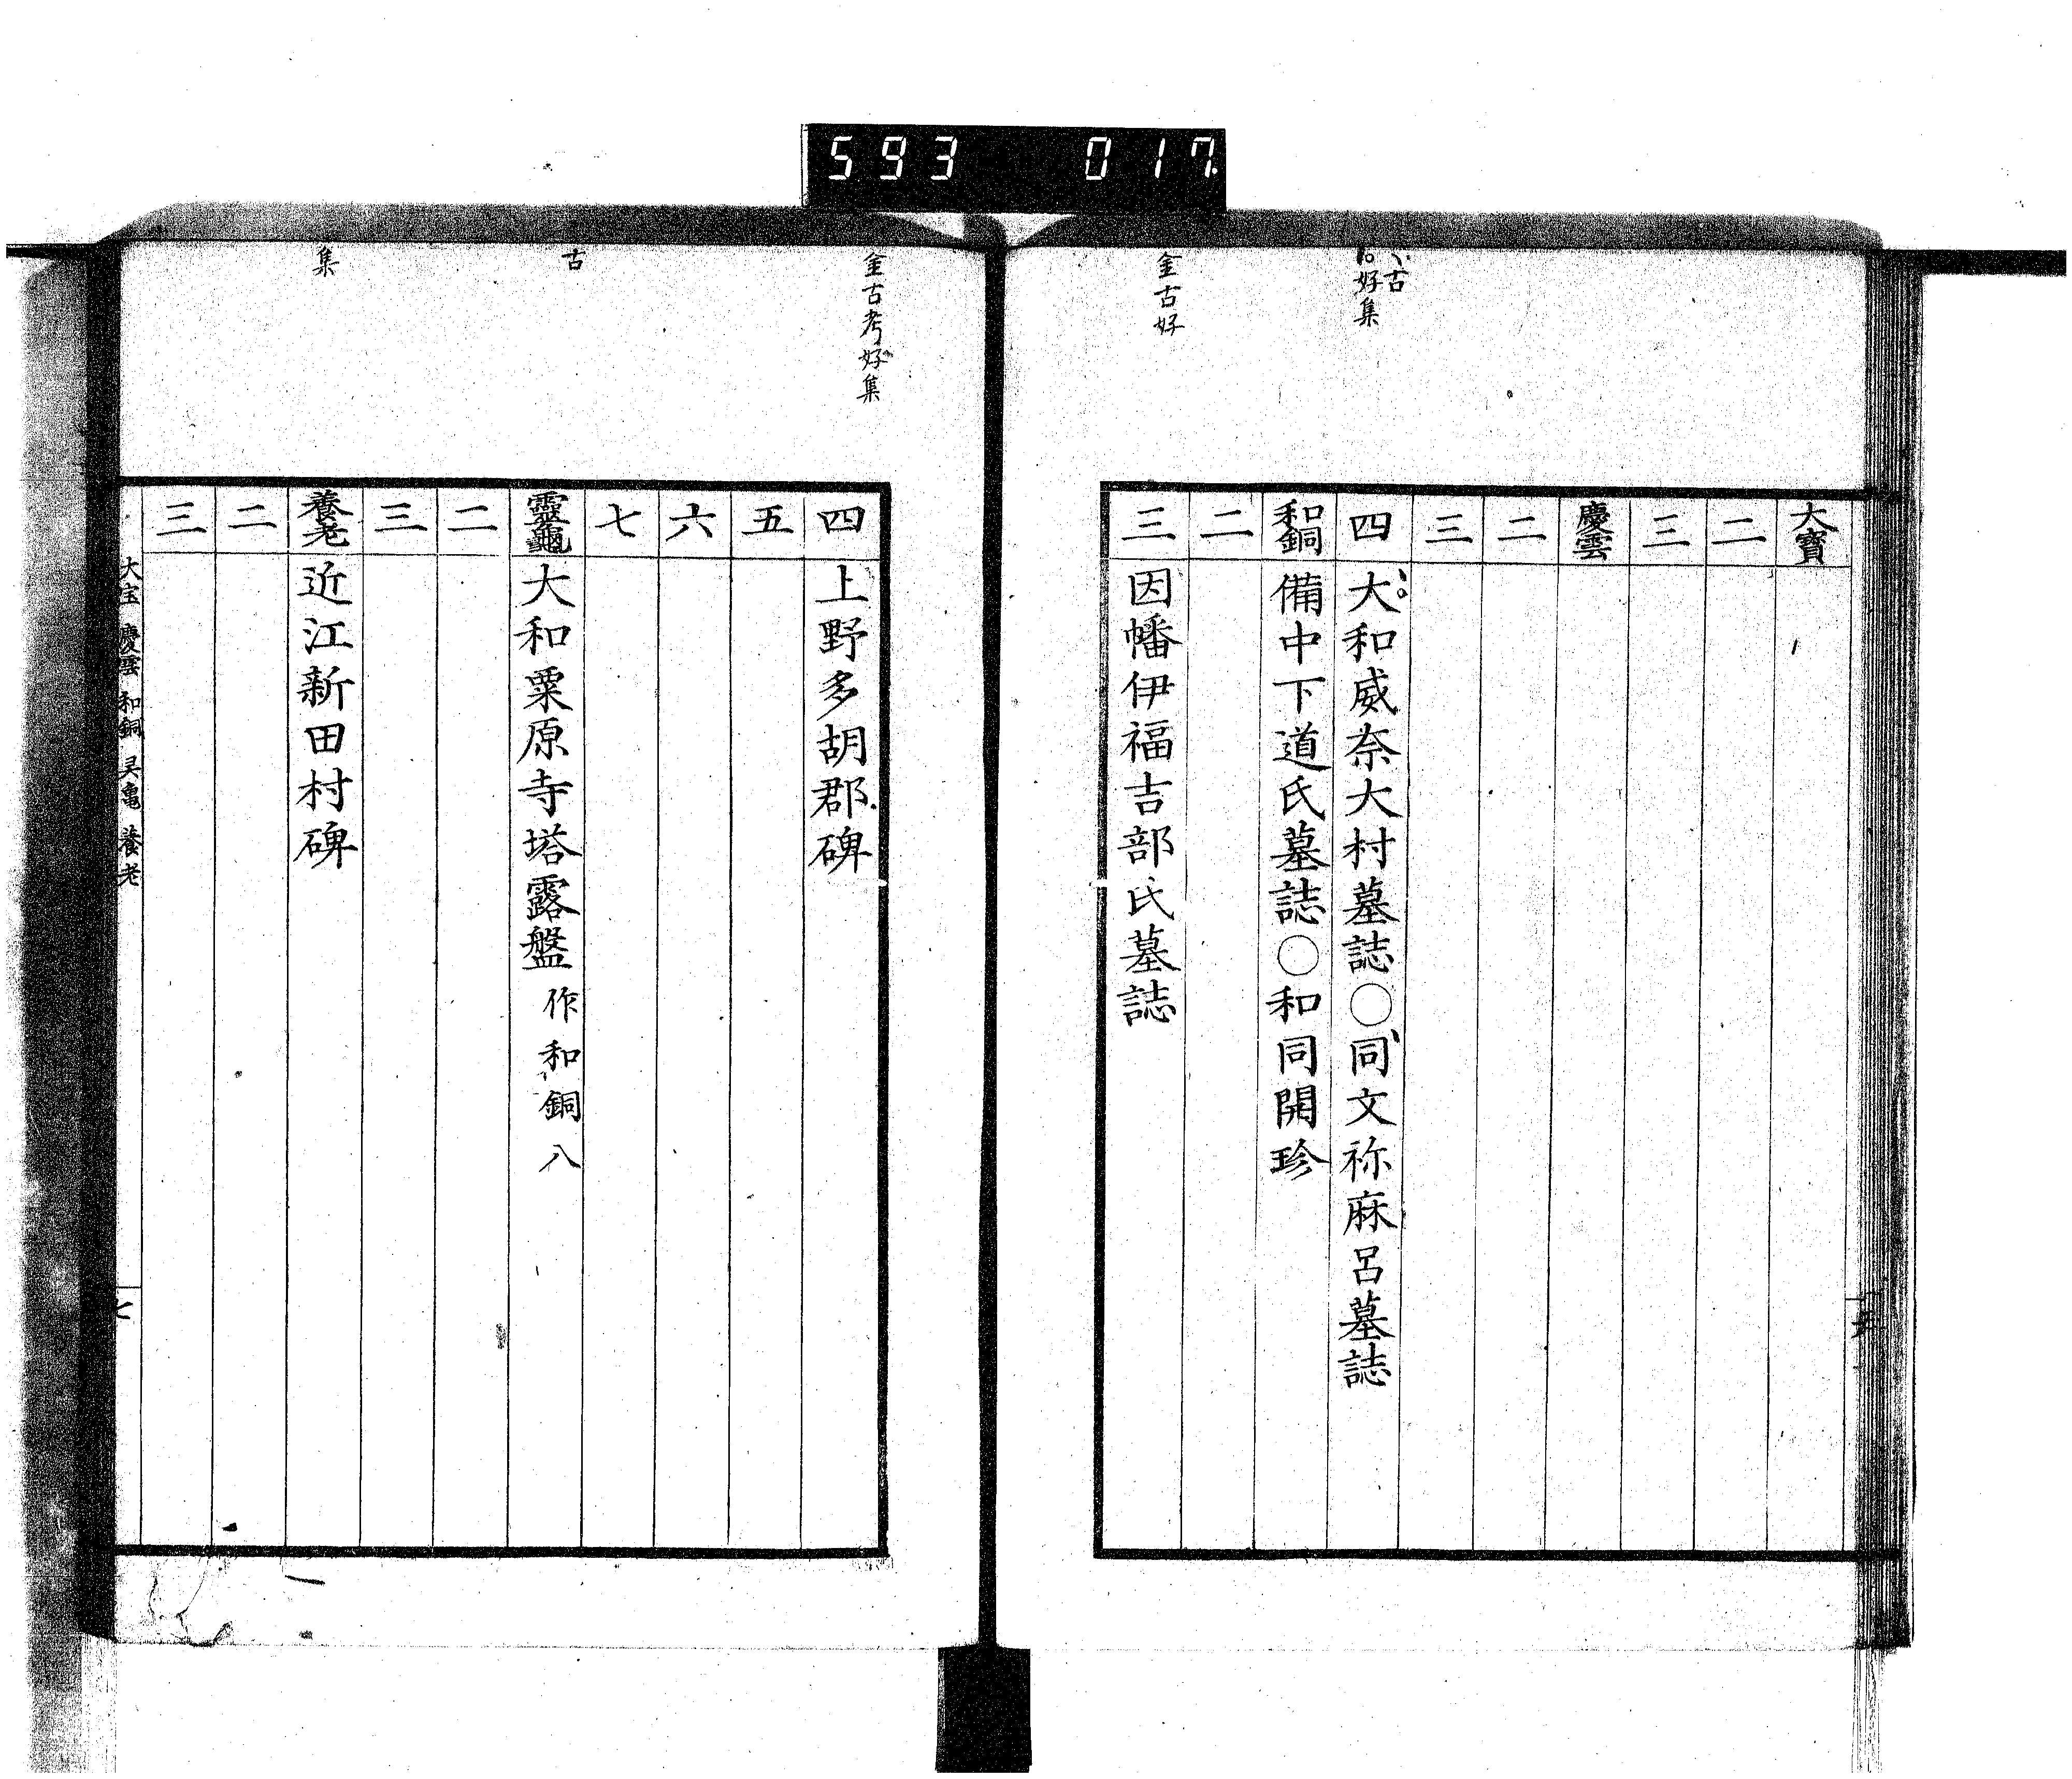 593 017
、古
。好集
金古好
大寶
二
三
慶雲
二
三
四 大和威奈大村墓誌○同文祢麻呂墓誌
和銅 備中下道氏墓誌○和同開珍
二
三 因幡伊福吉部氏墓誌
金古考好集
古
集
四 上野多胡郡碑
五
六
七
靈龜 大和粟原寺塔露盤 作和銅八
二
三
養老 近江新田村碑
二
三
大宝 慶雲 和銅 灵亀 養老
七